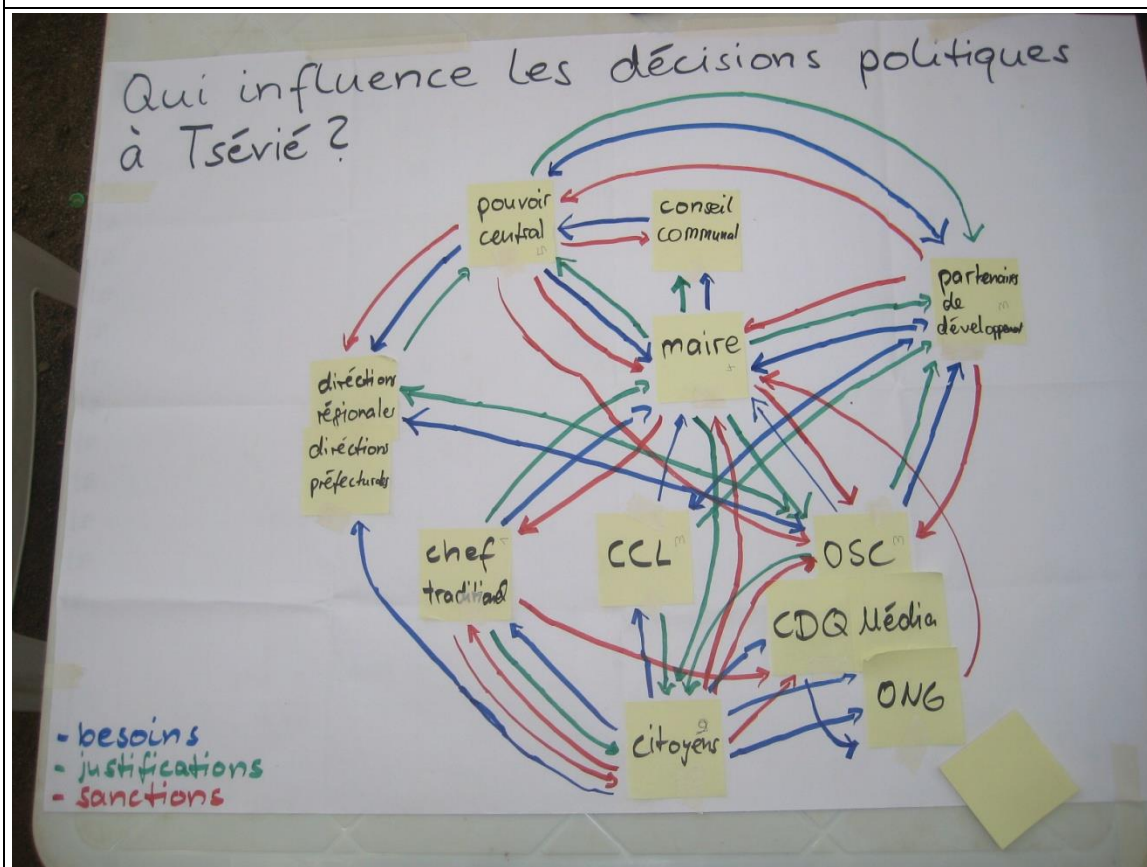 Qui influence les décisions politiques
à Tsévié?
pouvoir
central
5
conseil
communal
partenaires
de
développement
3
maire
4
diréctions
régionales
diréctions
préfecturales
chef
traditionel
1
CCL
3
OSC
3
CDQ Média
ONG
citoyens
- besoins
- justifications
- sanctions